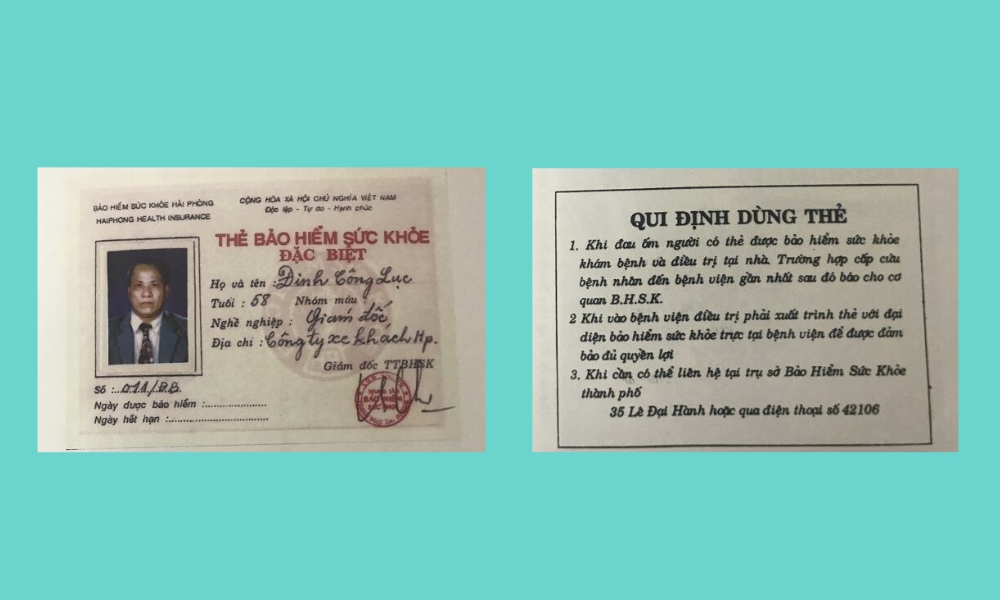 BẢO HIỂM SỨC KHỎE HẢI PHÒNG
HAIPHONG HEALTH INSURANCE
CỘNG HÒA XÃ HỘI CHỦ NGHĨA VIỆT NAM
Độc lập - Tự do - Hạnh phúc
THẺ BẢO HIỂM SỨC KHỎE
ĐẶC BIỆT
Họ và tên : Đinh Công Lục
Tuổi : 58 Nhóm máu :
Nghề nghiệp : Giám đốc
Địa chỉ : Công ty xe khách Hp.
Giám đốc TTBHSK
BẢO HIỂM
Số :..011/ĐB.
Ngày được bảo hiểm :
Ngày hết hạn :
QUI ĐỊNH DÙNG THẺ
1. Khi đau ốm người có thẻ được bảo hiểm sức khỏe
khám bệnh và điều trị tại nhà. Trường hợp cấp cứu
bệnh nhân đến bệnh viện gần nhất sau đó báo cho cơ
quan B.H.S.K.
2 Khi vào bệnh viện điều trị phải xuất trình thẻ với đại
diện bảo hiểm sức khỏe trực tại bệnh viện để được đảm
bảo đủ quyền lợi
3. Khi cần có thể liên hệ tại trụ sở Bảo Hiểm Sức Khỏe
thành phố
35 Lê Đại Hành hoặc qua điện thoại số 42106